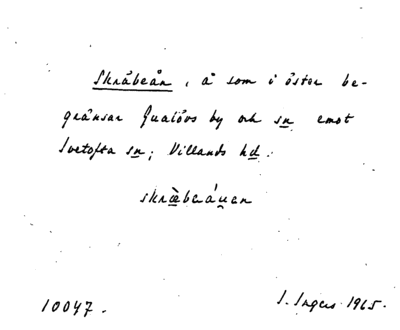 Skräbeån, å som i öster be-
gränsar Gualövs by och sn emot
Ivetofta sn; Villands hd.
skræ̀beáu̯en
10047.
I. Ingers 1965.